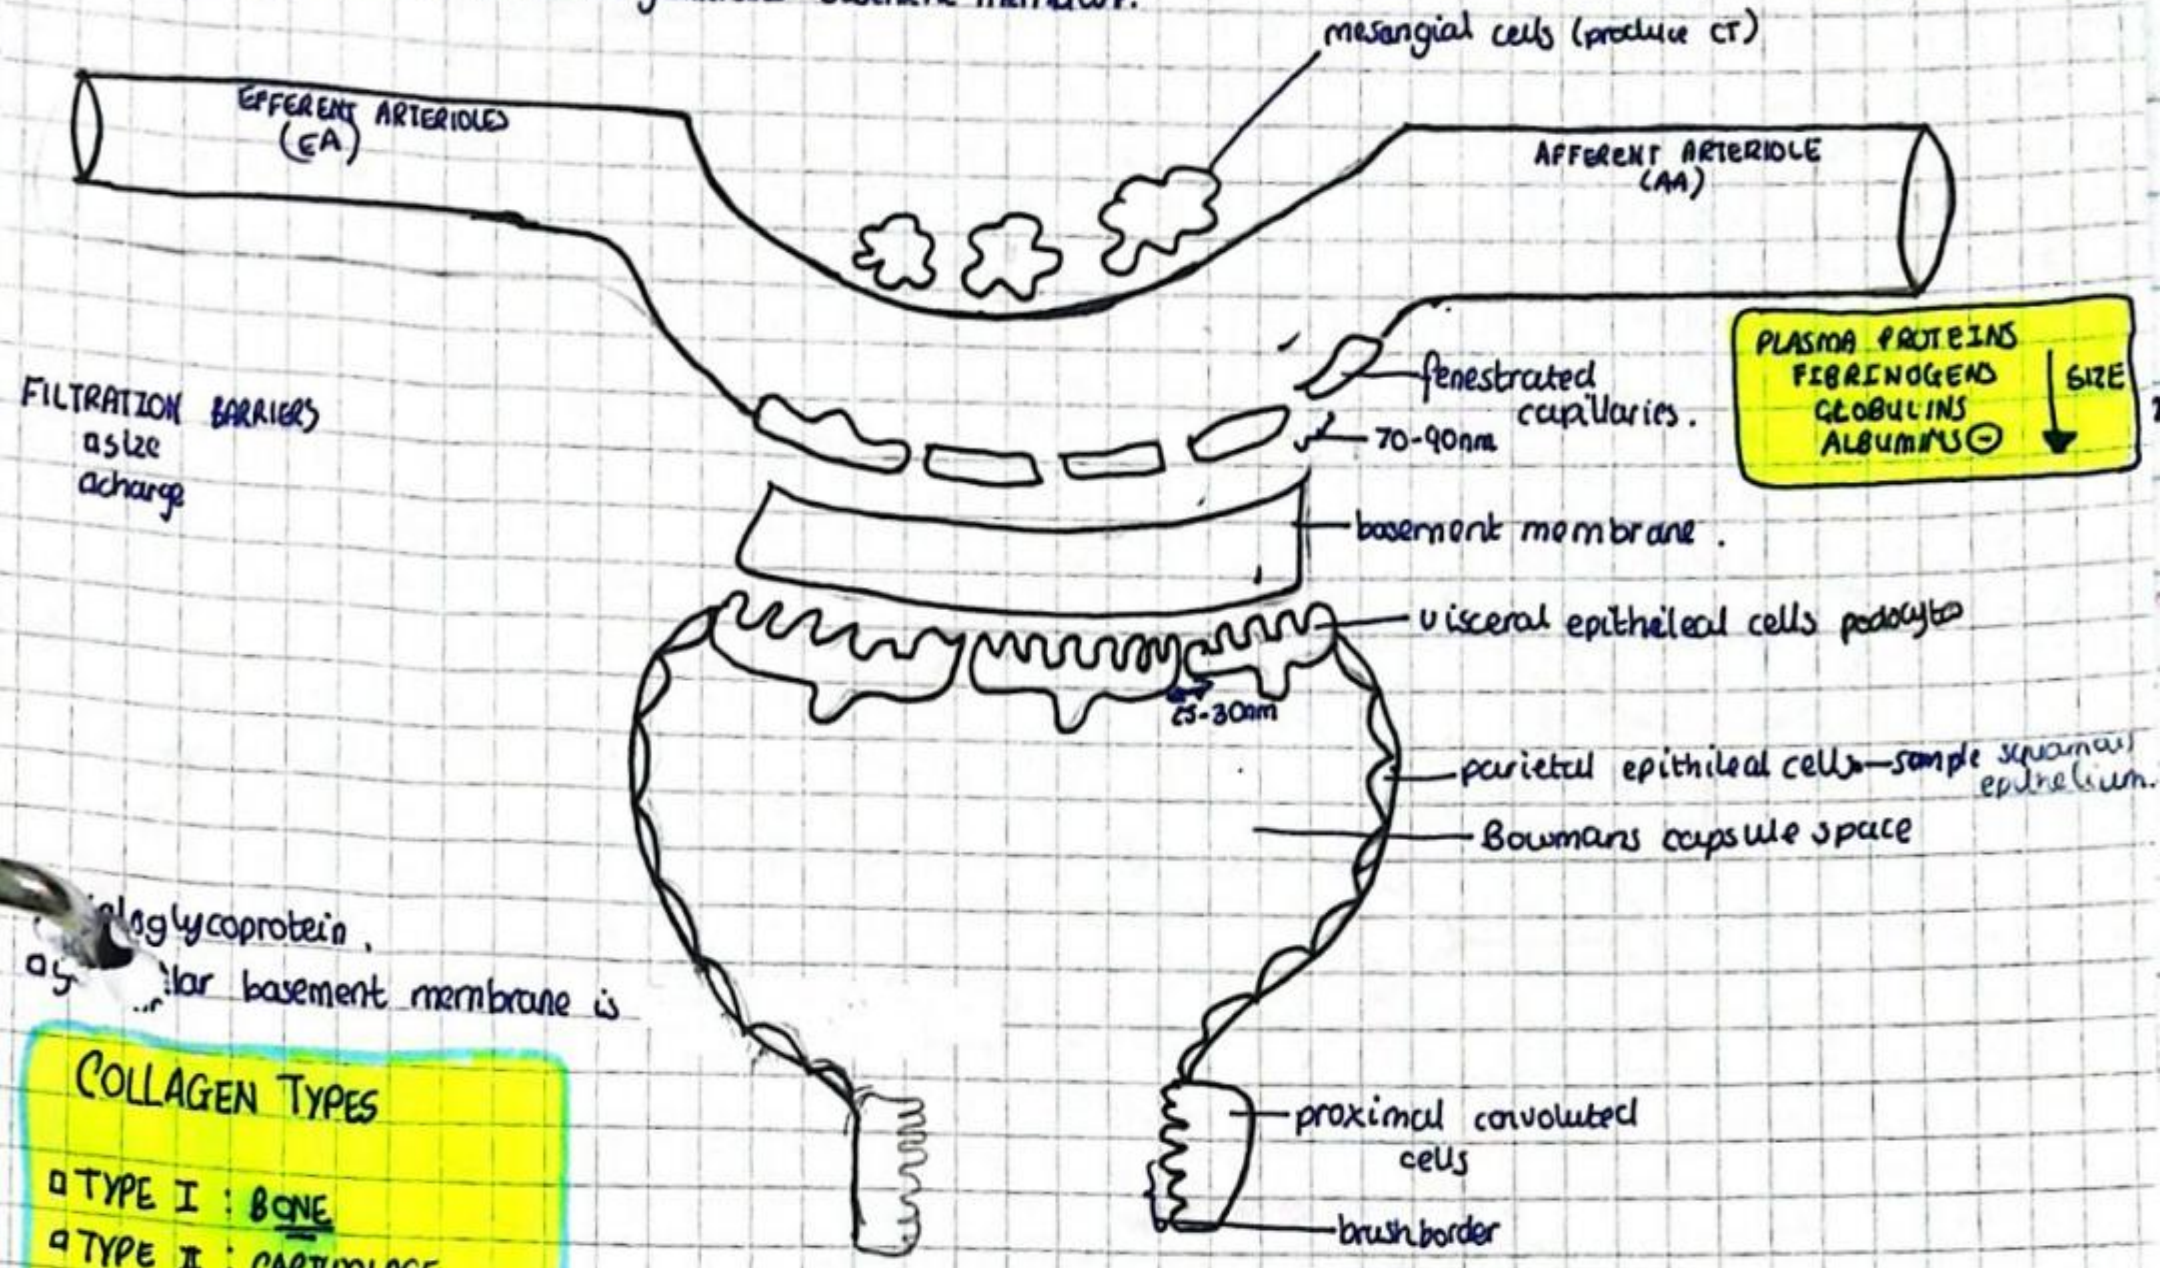 basement membrane.
mesangial cells (produce CT)
EFFERENT ARTERIOLES
(EA)
AFFERENT ARTERIOLE
(AA)
PLASMA PROTEINS
FIBRINOGENS
GLOBULINS
ALBUMINS ⊖
SIZE
fenestrated
capillaries.
70-90nm
FILTRATION BARRIERS
□ size
□ charge
basement membrane.
visceral epitheleal cells podocyte
25-30nm
parietal epithileal cells - simple squamous
epithelium.
Bowmans capsule space
glycoprotein.
lar basement membrane is
COLLAGEN TYPES
□ TYPE I : BONE
□ TYPE II : CARTILAGE
proximal convoluted
cells
brush border